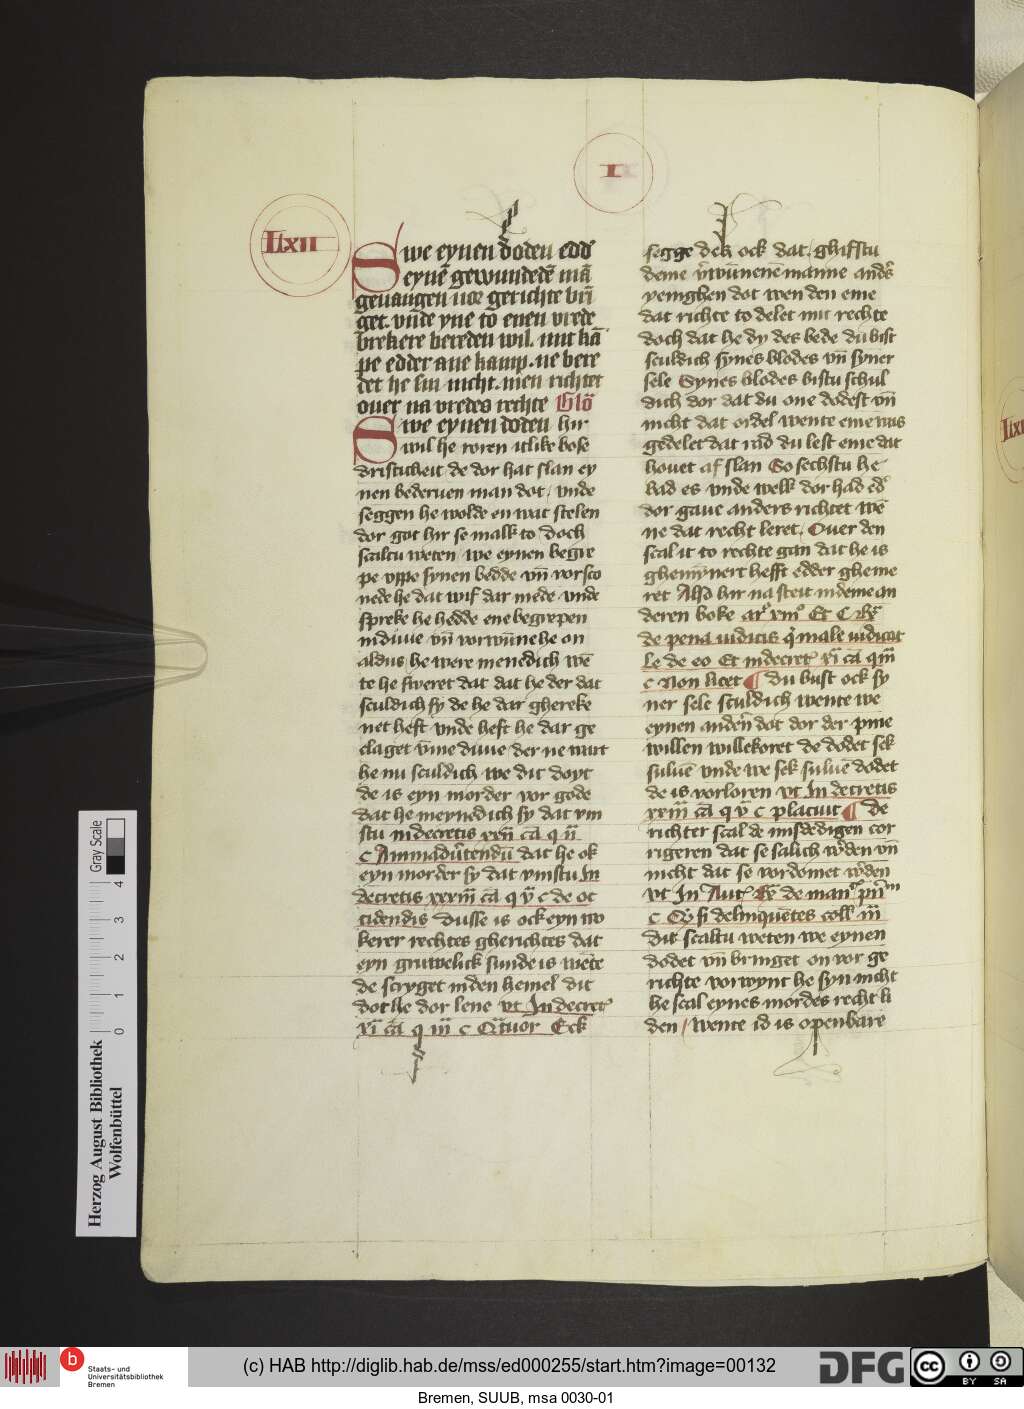 I
Lxii
Swe eynen doden edd̉
eynē gewundedē mā
geuangen uor gerichte brī
get. vnde yne to enen vrede
brekere bereden wil. mit kā
pe edder ane kamp. ne bere
det he sin nicht. men richtet
ouer na vredes rechte Glo᷒
Swe eynen doden hir
wil he roren itlike bose
dristicheit de dor hat slan ey
nen bederuen man dot / vnde
seggen he wolde en wat stelen
dor got hir se malk to doch
scaltu weten / we eynen begre
pe vppe synen bedde vn̄ vorsco
nede he dat wif dar mede vnde
spreke he hedde ene begrepen
in diuue vn̄ vorwūne he on
aldus he were menedich wē
te he sweret dat dat he der dat
sculdich sy de he dar ghereke
net heft vnde heft he dar ge
claget v̄me duue der ne wart
he nu sculdich we dit doyt
de is eyn morder vor gode
dat he meynedich sy dat vin
stu in decretis xxii cā q ii
c Animaduertendū dat he ok
eyn morder sy dat vinstu In
decretis xxxiii cā q v c de oc
cidendis Dusse is ock eyn vo
kerer rechtes gherichtes dat
eyn gruwelick sunde is wēte
de scryget in den hemel dit
dot lle dor lene vt In decret
xi cā q iii c Qtuor Eck
segge dek ock dat. ghifstu
deme v̓wūnenē manne and̓s
yenighen dot wen den eme
dat richte to delet mit rechte
doch dat he dy des bede du bist
sculdich synes blodes vn̄ syner
sele Synes blodes bistu schul
dich dor dat du one dodest vn̄
nicht dat ordel wente eme was
gedelet dat rad du lest eme dat
houet af slan So sechstu he
bad es vnde welk dor had ed̓
dor gaue anders richtet wē
ne dat recht leret. Ouer den
scal it to rechte gan dat he is
ghemynert hefft edder gheme
ret Also hir na steit in deme an
deren boke ar° xiii° Et C
de pena iudicis q̓ male iudicat
le de eo Et in decret xi cā q iii
c Non licet ¶ du bust ock sy
ner sele sculdich wente we
eynen andern dot dor der pine
willen willekoret de dodet sek
suluē vnde we sek suluē dodet
de is vorloren vt In decretis
xxiii cā q v c placuit ¶ de
richter scal de misdedigen cor
rigeren dat se salich w̓den vn̄
nicht dat se vordomet w̓den
vt In Aut de man pn̄
c Q si delinquētes coll iii
Dit scaltu weten we eynen
dodet vn̄ bringet on vor ge
richte vorwynt he syn nicht
he scal eynes mordes recht li
den / wente id is openbare
Gray Scale
0 1 2 3 4
Herzog August Bibliothek
Wolfenbüttel
b
Staats- und
Universitätsbibliothek
Bremen
(c) HAB http://diglib.hab.de/mss/ed000255/start.htm?image=00132
DFG
cc
BY SA
Bremen, SUUB, msa 0030-01